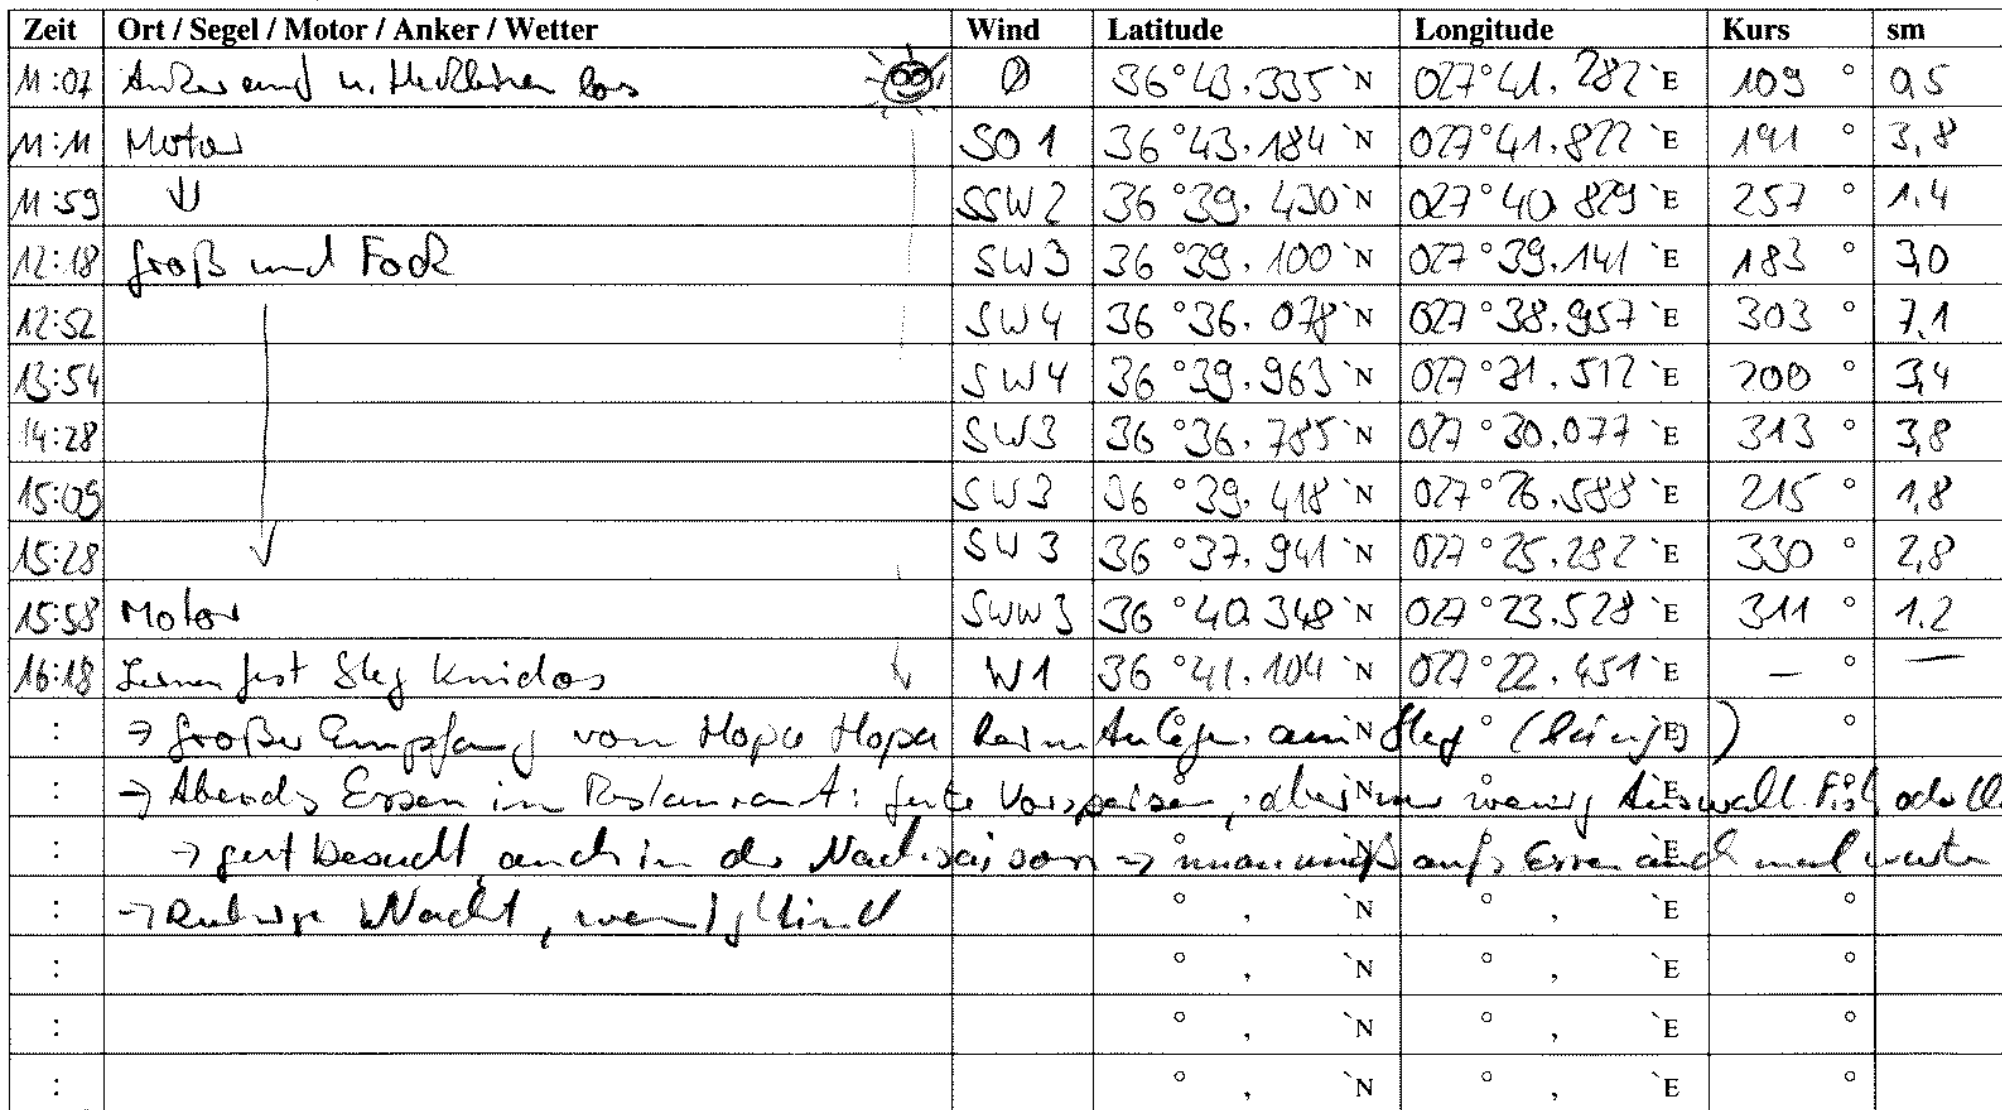 Zeit Ort / Segel / Motor / Anker / Wetter Wind Latitude Longitude Kurs sm
11:07 Anker und u. Heckleinen los Ø 36°43,335`N 027°41,282`E 109° 0,5
11:11 Motor SO 1 36°43,184`N 027°41,822`E 191° 3,8
11:59 ↓ SSW 2 36°39,430`N 027°40,829`E 257° 1,4
12:18 Groß und Fock SW 3 36°39,100`N 027°39,141`E 183° 3,0
12:52 SW 4 36°36,078`N 027°38,957`E 303° 7,1
13:54 SW 4 36°39,963`N 027°31,512`E 200° 3,4
14:28 SW 3 36°36,785`N 027°30,077`E 313° 3,8
15:09 SW 3 36°39,418`N 027°26,588`E 215° 1,8
15:28 SW 3 36°37,941`N 027°25,282`E 330° 2,8
15:58 Motor SWW 3 36°40,348`N 027°23,528`E 311° 1,2
16:18 Leinen fest Steg Knidos W 1 36°41,104`N 027°22,451`E – ° –
: → Großer Empfang von Hopa Hopa beim Anlegen am Steg (längs) `N ° `E °
: → Abends Essen im Restaurant: gute Vorspeisen, aber nur wenig Auswahl Fisch oder `N ° `E °
: → gut besucht auch in der Nachsaison → man muß aufs Essen auch mal warten ° `N ° `E
: → Ruhige Nacht, wenig Wind ° , `N ° , `E °
: ° , `N ° , `E °
: ° , `N ° , `E °
: ° , `N ° , `E °